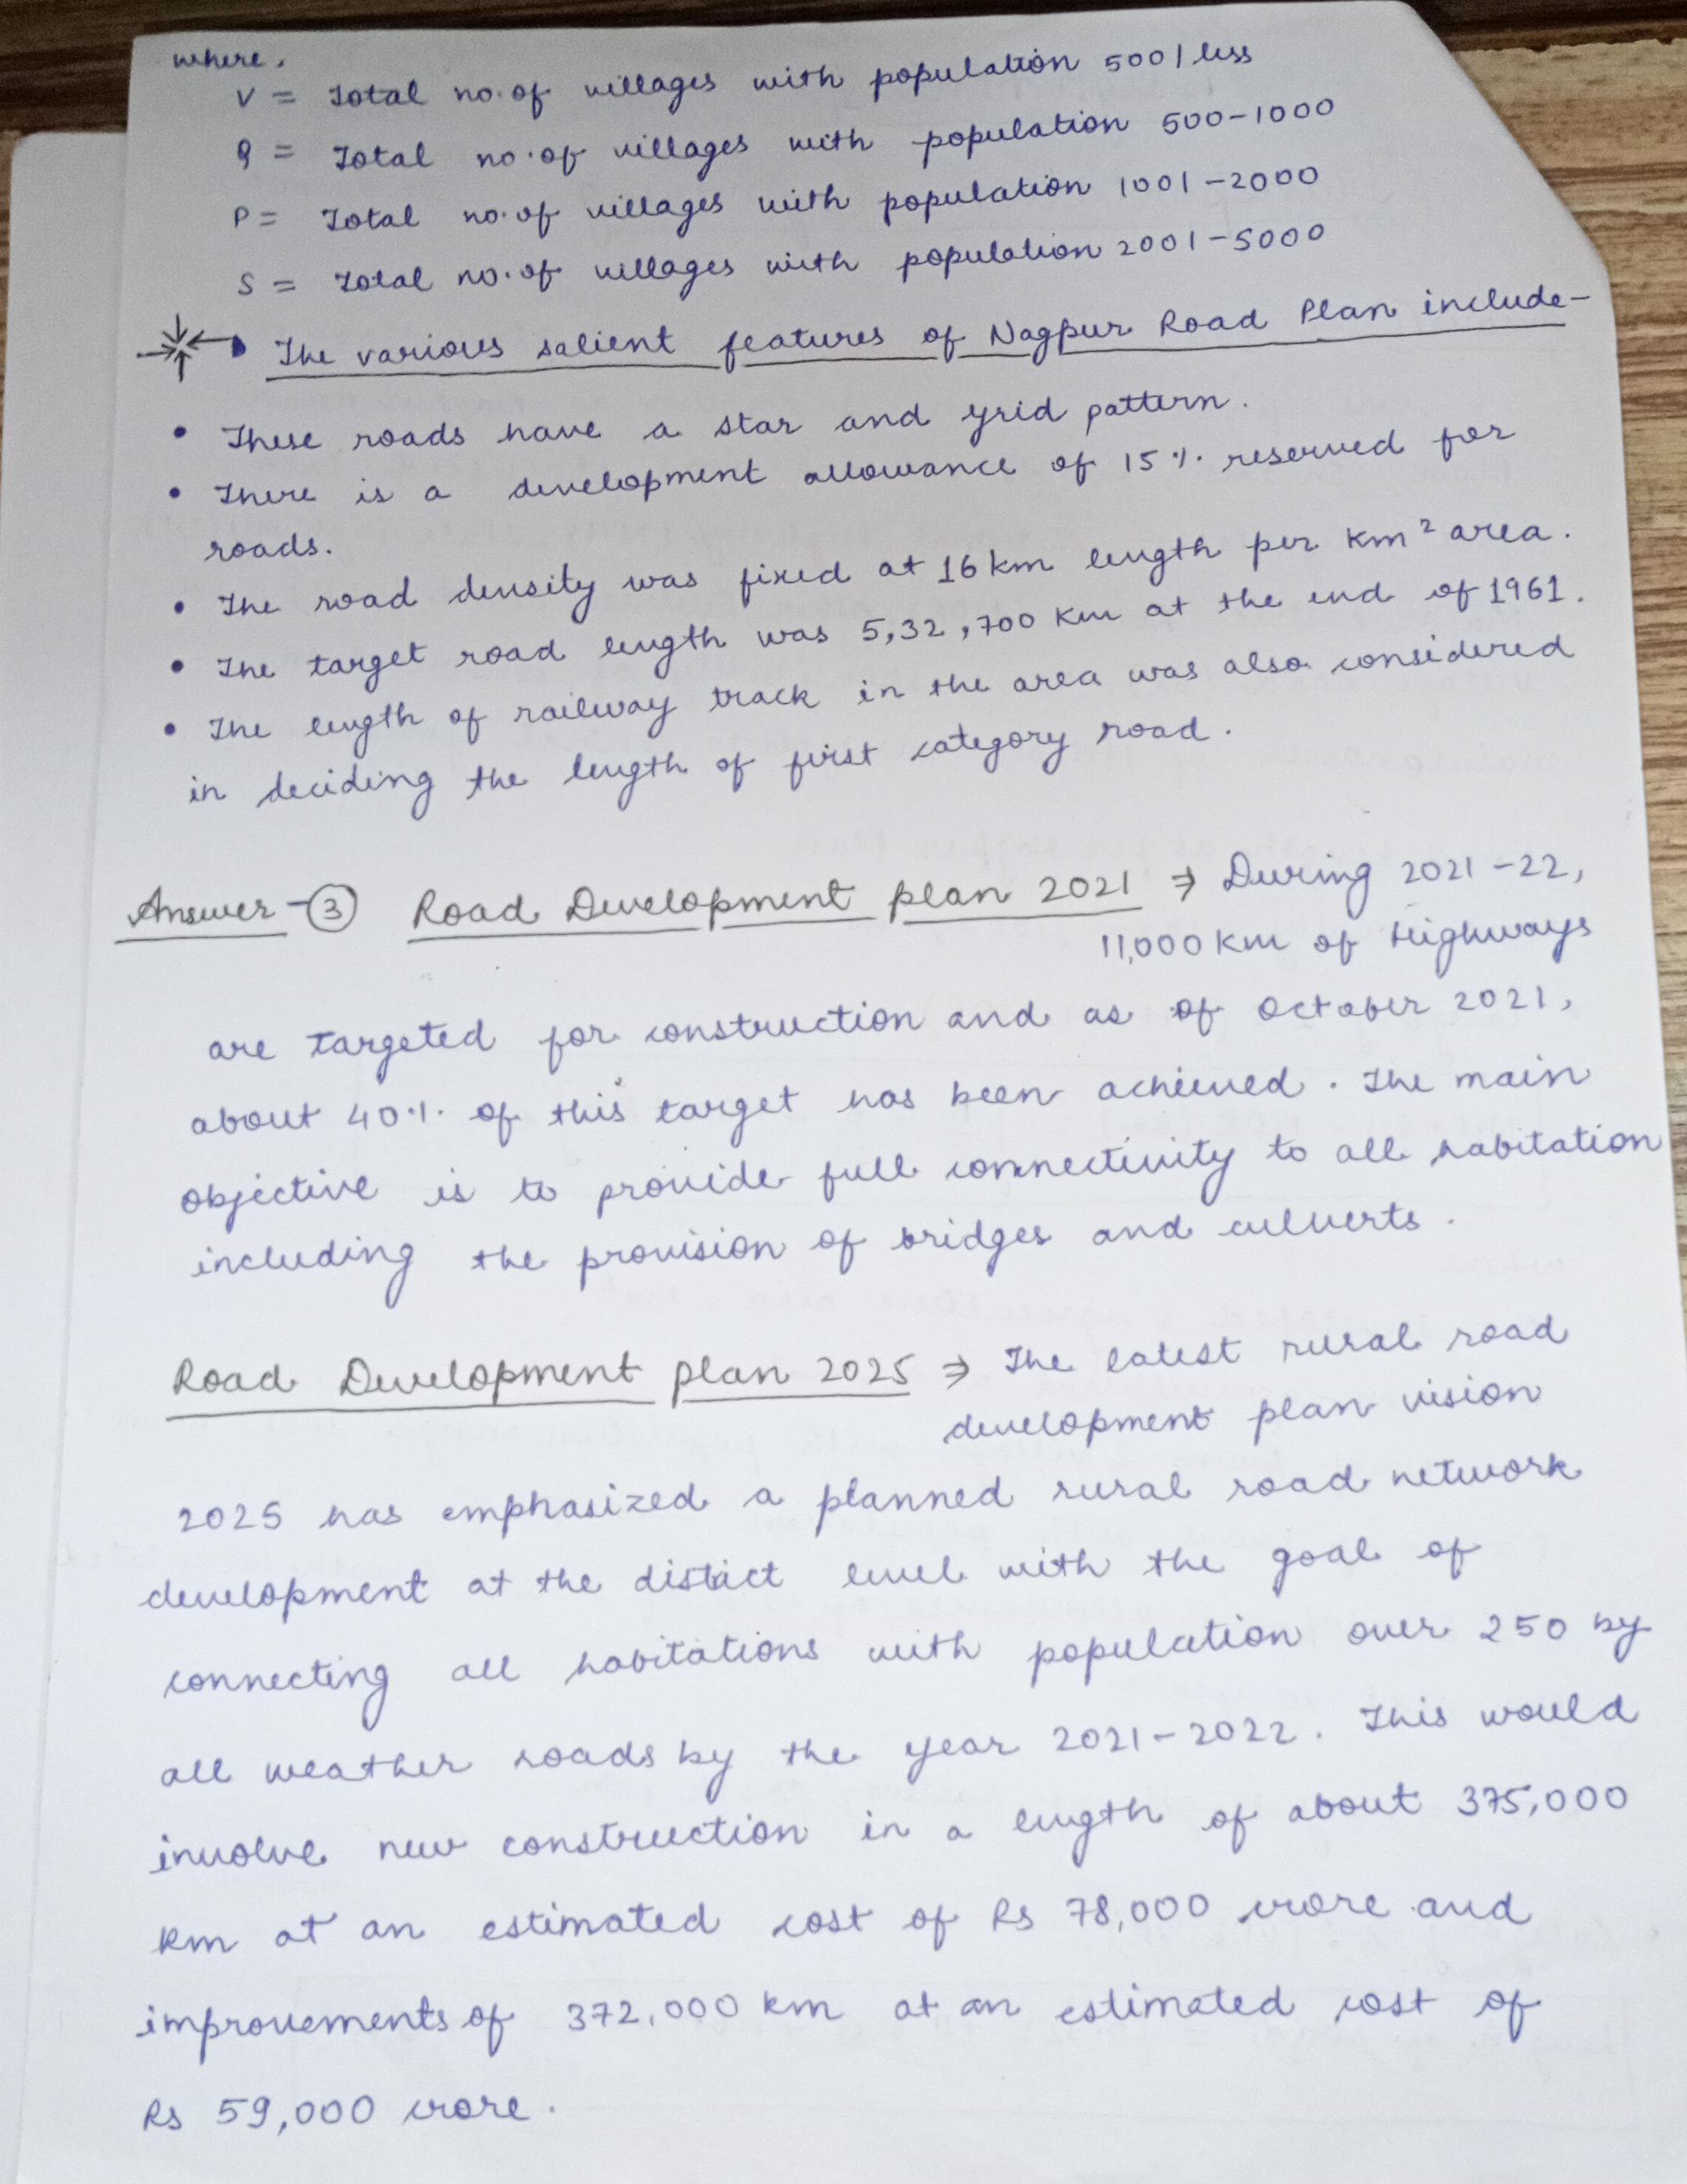 where,
V = Total no. of villages with population 500/less
Q = Total no. of villages with population 500-1000
P = Total no. of villages with population 1001-2000
S = Total no. of villages with population 2001-5000
The various salient features of Nagpur Road Plan include-
• These roads have a star and grid pattern.
• There is a development allowance of 15% reserved for
roads.
• The road density was fixed at 16 km length per km² area.
• The target road length was 5,32,700 km at the end of 1961.
• The length of railway track in the area was also considered
in deciding the length of first category road.
Answer-③ Road Development plan 2021 ⇒ During 2021-22,
11,000 km of Highways
are targeted for construction and as of October 2021,
about 40% of this target has been achieved. The main
objective is to provide full connectivity to all habitation
including the provision of bridges and culverts.
Road Development plan 2025 ⇒ The latest rural road
development plan vision
2025 has emphasized a planned rural road network
development at the district level with the goal of
connecting all habitations with population over 250 by
all weather roads by the year 2021-2022. This would
involve new construction in a length of about 375,000
km at an estimated cost of Rs 78,000 crore and
improvements of 372,000 km at an estimated cost of
Rs 59,000 crore.